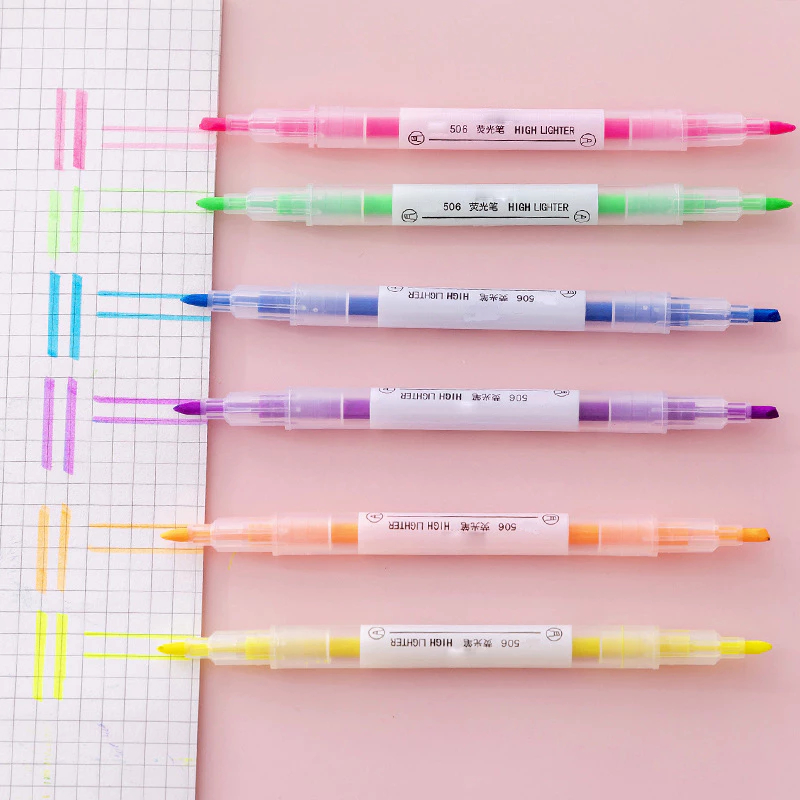 506 荧光笔 HIGH LIGHTER
506 荧光笔 HIGH LIGHTER
506 荧光笔 HIGH LIGHTER
506 荧光笔 HIGH LIGHTER
506 荧光笔 HIGH LIGHTER
506 荧光笔 HIGH LIGHTER